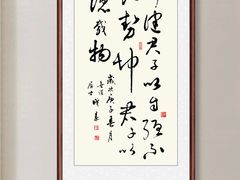 健君子以自强不
地势坤君子以
德载物
岁次庚子春月
居士